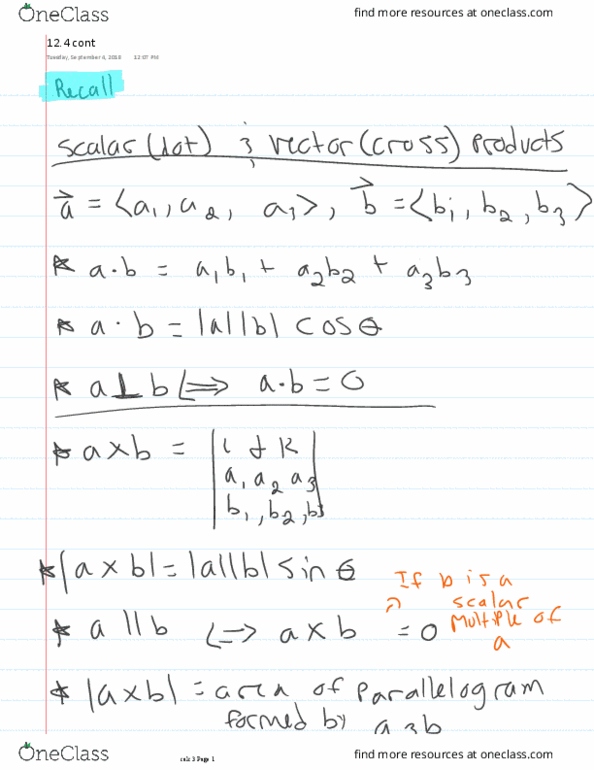 OneClass find more resources at oneclass.com
12.4 cont
Tuesday, September 4, 2018 12:57 PM
Recall
scalar (dot) & vector (cross) Products
a⃗ = <a₁, a₂, a₁>, b⃗ = <b₁, b₂, b₃>
* a·b = a₁b₁ + a₂b₂ + a₃b₃
* a·b = |a||b| cosθ
* a⊥b ⟺ a·b = 0
* a×b = | i j k |
| a₁ a₂ a₃ |
| b₁, b₂, b₃ |
* |a×b| = |a||b| sin θ
If b is a
scalar
Multiple of
a
* a ∥ b ⟺ a×b = 0
* |a×b| = area of Parallelogram
formed by a & b
OneClass calc 3 Page 1 find more resources at oneclass.com